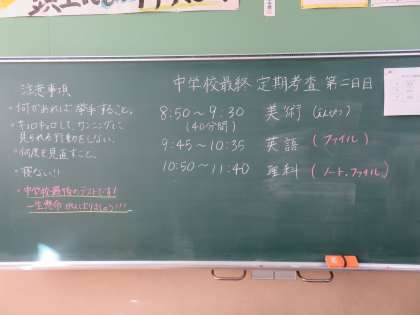 中学校最終 定期考査 第二日目
注意事項
・何かあれば挙手すること。
・キョロキョロして、カンニングに
見られる行動をしない。
・何度も見直すこと。
・寝ない!!
・中学校最後のテストです!
一生懸命 がんばりましょう!!!
8:50～9:30 美術(えんぴつ)
(40分間)
9:45～10:35 英語(ファイル)
10:50～11:40 理科(ノート、ファイル)